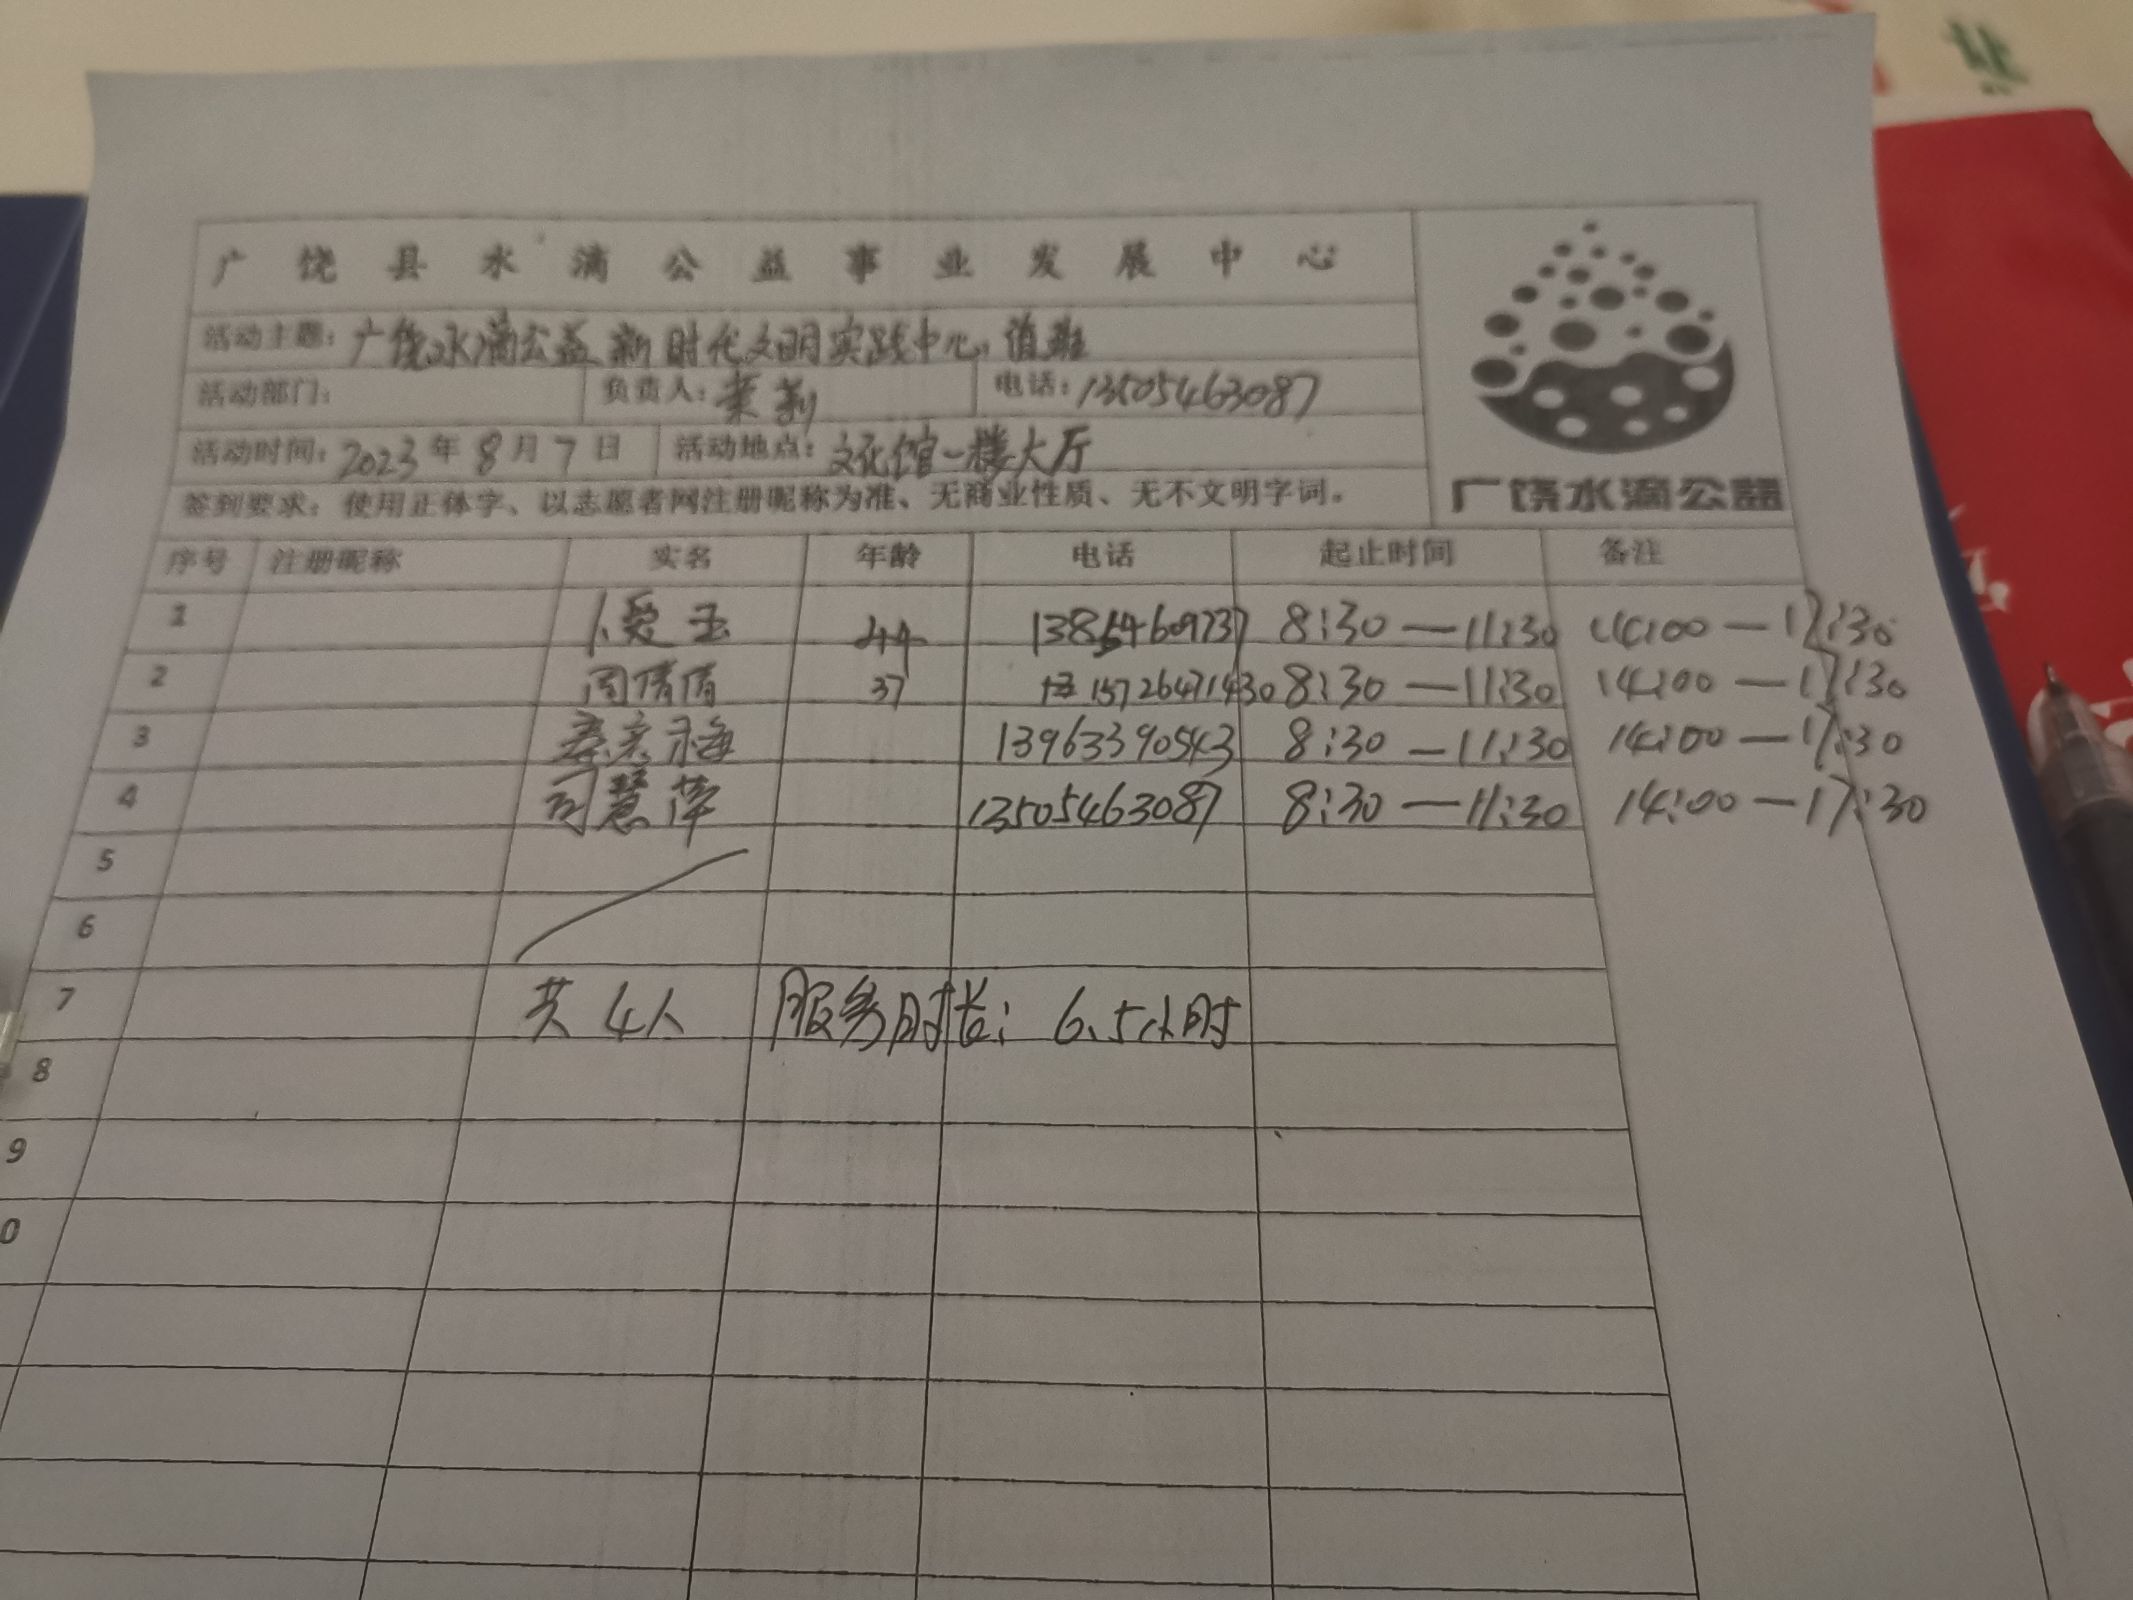 广饶县水滴公益事业发展中心
活动主题：广饶水滴公益新时代文明实践中心值班
活动部门： 负责人：茉莉 电话：13505463087
活动时间：2023年8月7日 活动地点：文化馆一楼大厅
签到要求：使用正体字、以志愿者网注册昵称为准、无商业性质、无不文明字词。
广饶水滴公益
序号 注册昵称 实名 年龄 电话 起止时间 备注
1 卜爱玉 44 8:30—11:30 14:00—17:30
2 周倩倩 37 15726471430 8:30—11:30 14:00—17:30
3 13963390543 8:30—11:30 14:00—17:30
4 司慧萍 13505463087 8:30—11:30 14:00—17:30
5
6
7 共4人 服务时长：6.5小时
8
9
0